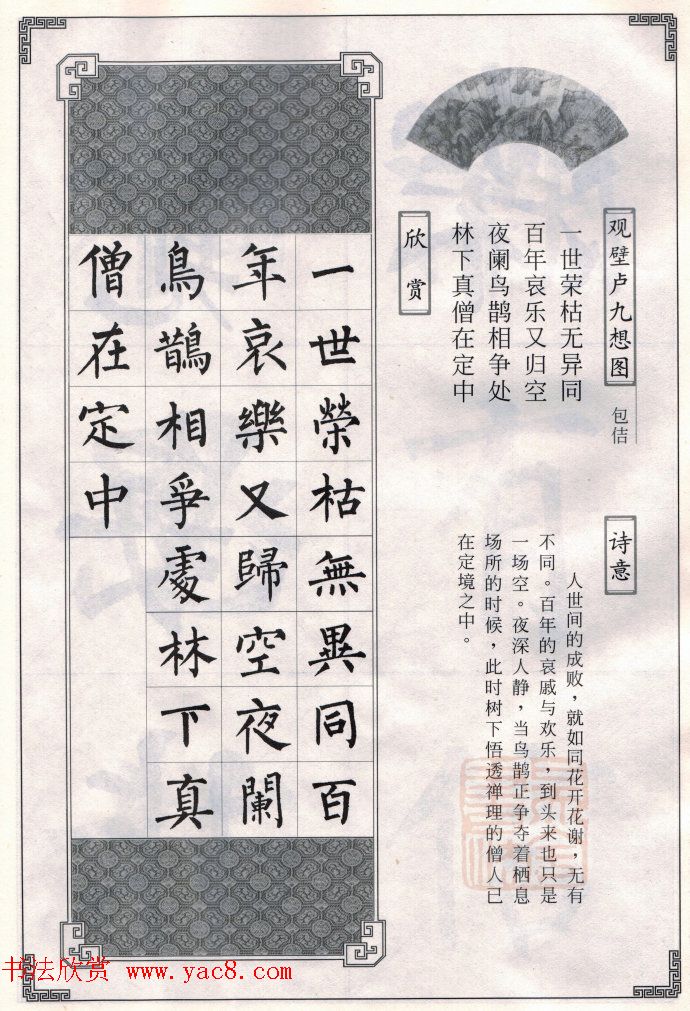 观壁卢九想图
包佶
一世荣枯无异同
百年哀乐又归空
夜阑鸟鹊相争处
林下真僧在定中
欣赏
诗意
人世间的成败，就如同花开花谢，无有
不同。百年的哀戚与欢乐，到头来也只是
一场空。夜深人静，当鸟鹊正争夺着栖息
场所的时候，此时树下悟透禅理的僧人已
在定境之中。
一世榮枯無異同百
年哀樂又歸空夜闌
鳥鵲相爭處林下真
僧在定中
书法欣赏 www.yac8.com